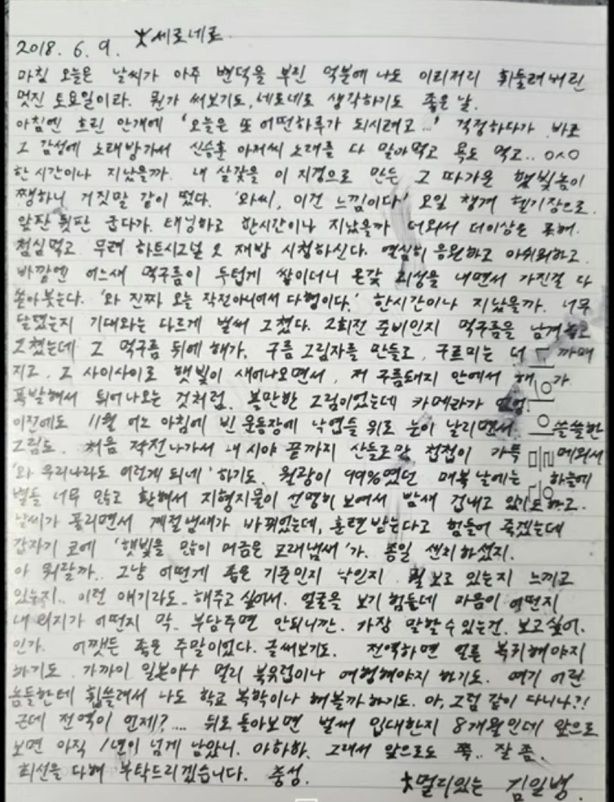 2018. 6. 9. 大세로네로.
마침 오늘은 날씨가 아주 변덕을 부린 덕분에 나도 이리저리 휘둘려버린
멋진 토요일이라. 뭔가 써보기도, 네로네로 생각하기도 좋은 날.
아침엔 흐린 안개에 '오늘은 또 어떤하루가 되시려고...' 걱정하다가 바로
그 감성에 노래방가서 신승훈 아저씨 노래를 다 말아먹고 욕도 먹고.. ㅇㅅㅇ
한시간이나 지났을까. 내 살갗을 이 지경으로 만든 그 따가운 햇빛놈이
쨍하니 거짓말 같이 떴다. '와씨, 이건 느낌이다' 오일 챙겨 헬기장으로.
앞판 뒷판 굽다가. 태닝하고 한시간이나 지났을까 더워서 더이상은 못해.
점심먹고. 무려 하트시그널 2 재방 시청하신다. 열심히 응원하고 아쉬워하고.
바깥엔 어느새 먹구름이 두텁게 쌓이더니 온갖 괴성을 내면서 가진걸 다
쏟아붓는다. '와 진짜 오늘 작전아니어서 다행이다.' 한시간이나 지났을까. 너무
달렸는지 기대와는 다르게 벌써 그쳤다. 2회전 준비인지 먹구름을 남겨놓고
그쳤는데 그 먹구름 뒤에 해가, 구름 그림자를 만들고, 구르미는 더 까매
지고, 그 사이사이로 햇빛이 새어나오면서, 저 구름돼지 안에서 해가
폭발해서 튀어나오는 것처럼. 볼만한 그림이었는데 카메라가
이전에도 11월 어느 아침에 빈 운동장에 낙엽들 위로 눈이 날리면서 쓸쓸한
그림도. 처음 작전나가서 내 시야 끝까지 산들로만 첩첩이 가득 메워서
'와 우리나라도 이렇게 되네' 하기도. 월광이 99%였던 매복날에는 하늘에
별들 너무 많고 환해서 지형지물이 선명히 보여서 밤새 겁내고 있기도하고.
날씨가 풀리면서 계절냄새가 바뀌었는데, 훈련받는다고 힘들어 죽겠는데
갑자기 코에 '햇빛을 많이 머금은 모래냄새'가. 종일 센치하셨지.
아 뭐랄까.. 그냥 어떻게 좁은 기준인지 낙인지 뭘 보고 있는지 느끼고
있는지.. 이런 얘기라도.. 해주고 싶어서. 얼굴을 보기 힘든데 마음이 어떤지
내 의지가 어떤지 막.. 부담주면 안되니깐. 가장 말할수 있는건. 보고싶어.
인가. 어쨌든 좋은 주말이었다. 글써보기도. 전역하면 얼른 복귀해야지
하기도. 가까이 일본이나 멀리 북유럽이나 여행해야지 하기도. 여기 어린
놈들한테 휩쓸려서 나도 학교 복학이나 해볼까하기도. 아, 그럼 같이 다니나?!
근데 전역이 언제?.... 뒤로 돌아보면 벌써 입대한지 8개월인데 앞으로
보면 아직 1년이 넘게 남았니. 아하하. 그래서 앞으로도 쭉.. 잘 좀.
최선을 다해 부탁드리겠습니다. 충성.
大멀리있는 김일병